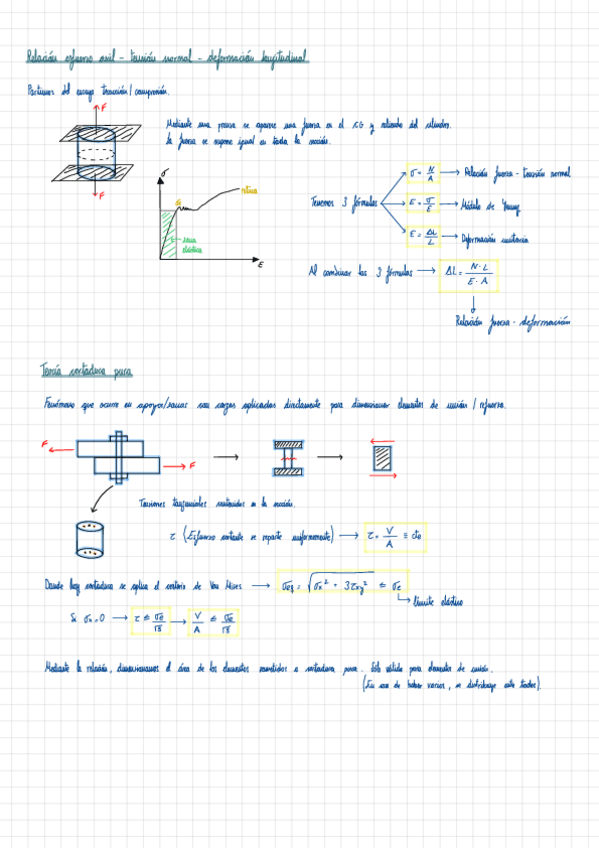 Relación esfuerzo axil - tensión normal - deformación longitudinal
Partimos del ensayo tracción / compresión.
F
Mediante una prensa se ejerce una fuerza en el CG y
del cilindro.
La fuerza se supone igual en toda la sección.
F
σ
rotura
zona elástica
ε
Tenemos 3 fórmulas
σ = N/A → Relación fuerza - tensión normal
E = σ/ε → Módulo de Young
ε = ΔL/L → Deformación unitaria
Al combinar las 3 fórmulas → ΔL = N·L / E·A
Relación fuerza - deformación
Teoría cortadura pura
Fenómeno que ocurre en apoyos/
con cargas aplicadas directamente para dimensionar elementos de unión / refuerzo.
F
F
Tensiones tangenciales contenidas en la sección.
τ (Esfuerzo cortante se reparte uniformemente) → τ = V/A ≡ cte
Donde hay cortadura se aplica el criterio de Von Mises → σeq = √(σx² + 3τxy²) ≤ σe
límite elástico
Si σx = 0 → τ ≤ σe/√3 → V/A ≤ σe/√3
Mediante la relación, dimensionamos el área de los elementos sometidos a cortadura pura. Sólo válido para elementos de unión.
(En caso de haber varios, se distribuye entre todos).